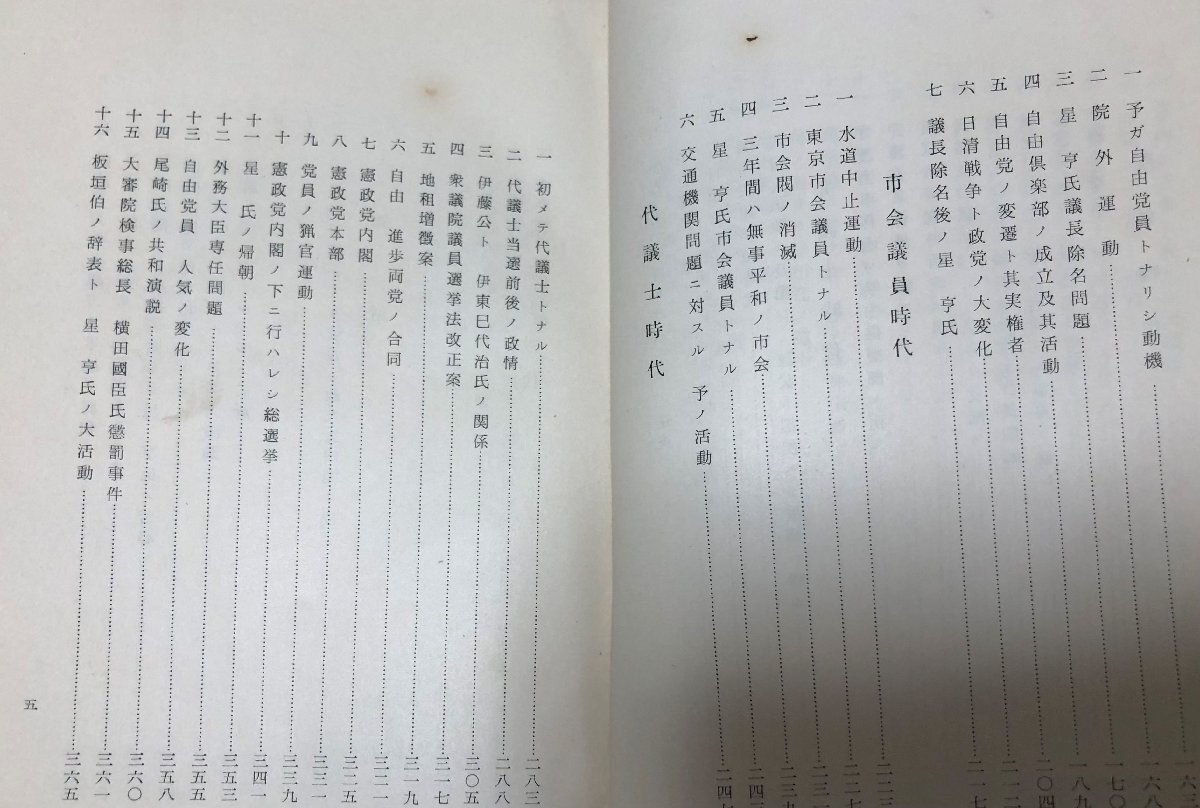 一 予ガ自由党員トナリシ動機
二 院外運動
三 星 亨氏議長除名問題……一七〇
四 自由倶楽部ノ成立及其活動……一八九
五 自由党ノ変遷ト其実権者……二〇四
六 日清戦争ト政党ノ大変化
七 議長除名後ノ星 亨氏……二一七
市会議員時代
一 水道中止運動……二二三
二 東京市会議員トナル……二二七
三 市会閥ノ消滅
四 三年間ハ無事平和ノ市会……二三九
五 星 亨氏市会議員トナル……二四三
六 交通機関問題ニ対スル 予ノ活動……二四七
代議士時代
一 初メテ代議士トナル……二八三
二 代議士当選前後ノ政情……二八八
三 伊藤公ト 伊東巳代治氏ノ関係……三〇五
四 衆議院議員選挙法改正案……三一七
五 地租増徴案……三一九
六 自由 進歩両党ノ合同……三二二
七 憲政党内閣……三二五
八 憲政党本部……三三一
九 党員ノ猟官運動……三三九
十 憲政党内閣ノ下ニ行ハレシ総選挙……三四一
十一 星 氏ノ帰朝……三五三
十二 外務大臣専任問題……三五五
十三 自由党員 人気ノ変化……三五八
十四 尾崎氏ノ共和演説……三六〇
十五 大審院検事総長 横田國臣氏懲罰事件……三六一
十六 板垣伯ノ辞表ト 星 亨氏ノ大活動……三六五
五